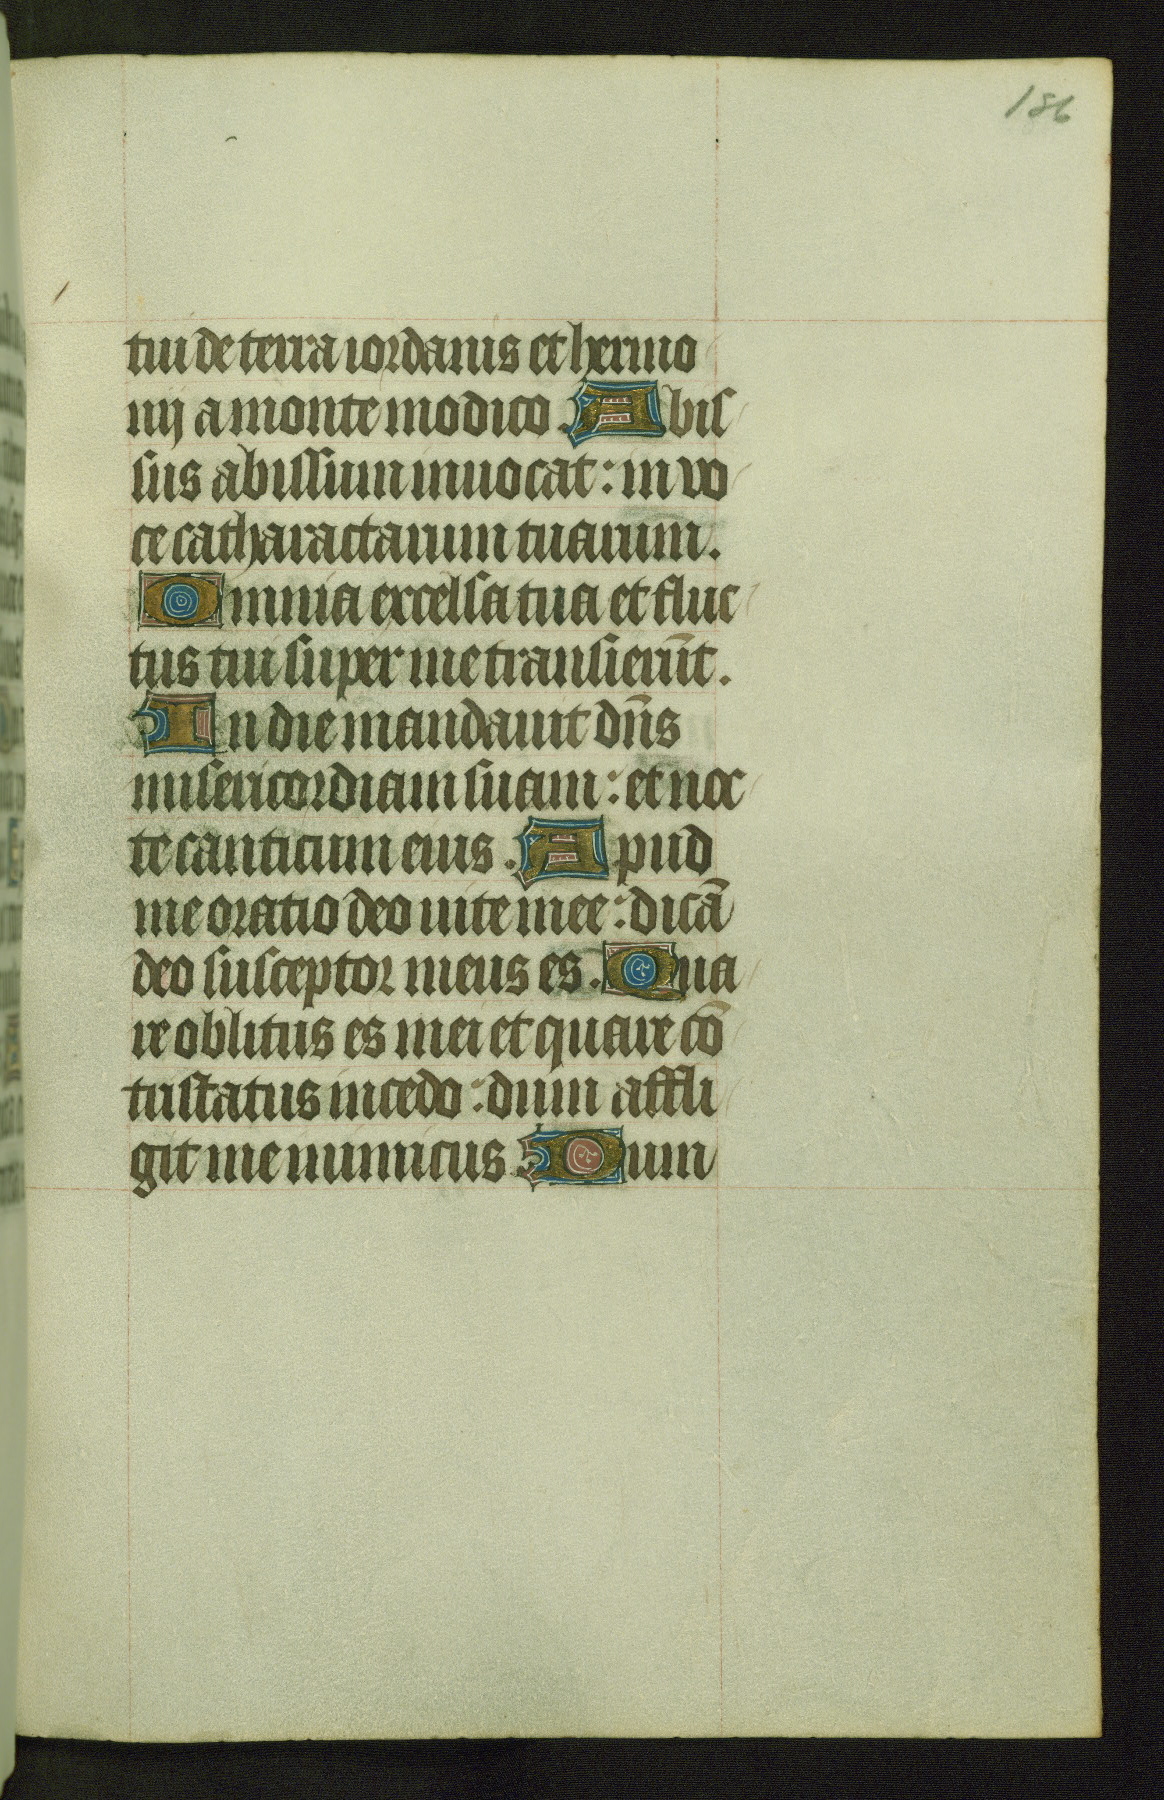 186
tui de terra iordanis et hermo
nij a monte modico. Abis
sus abissum inuocat: in vo
ce catharactarum tuarum.
Omnia excelsa tua et fluc
tus tui super me transierūt.
In die mandauit dn̄s
misericordiam suam: et noc
te canticum eius. Apud
me oratio deo uite mee: dicā
deo susceptor meus es. Qua
re oblitus es mei et quare cō
tristatus incedo: dum affli
git me inimicus. Dum